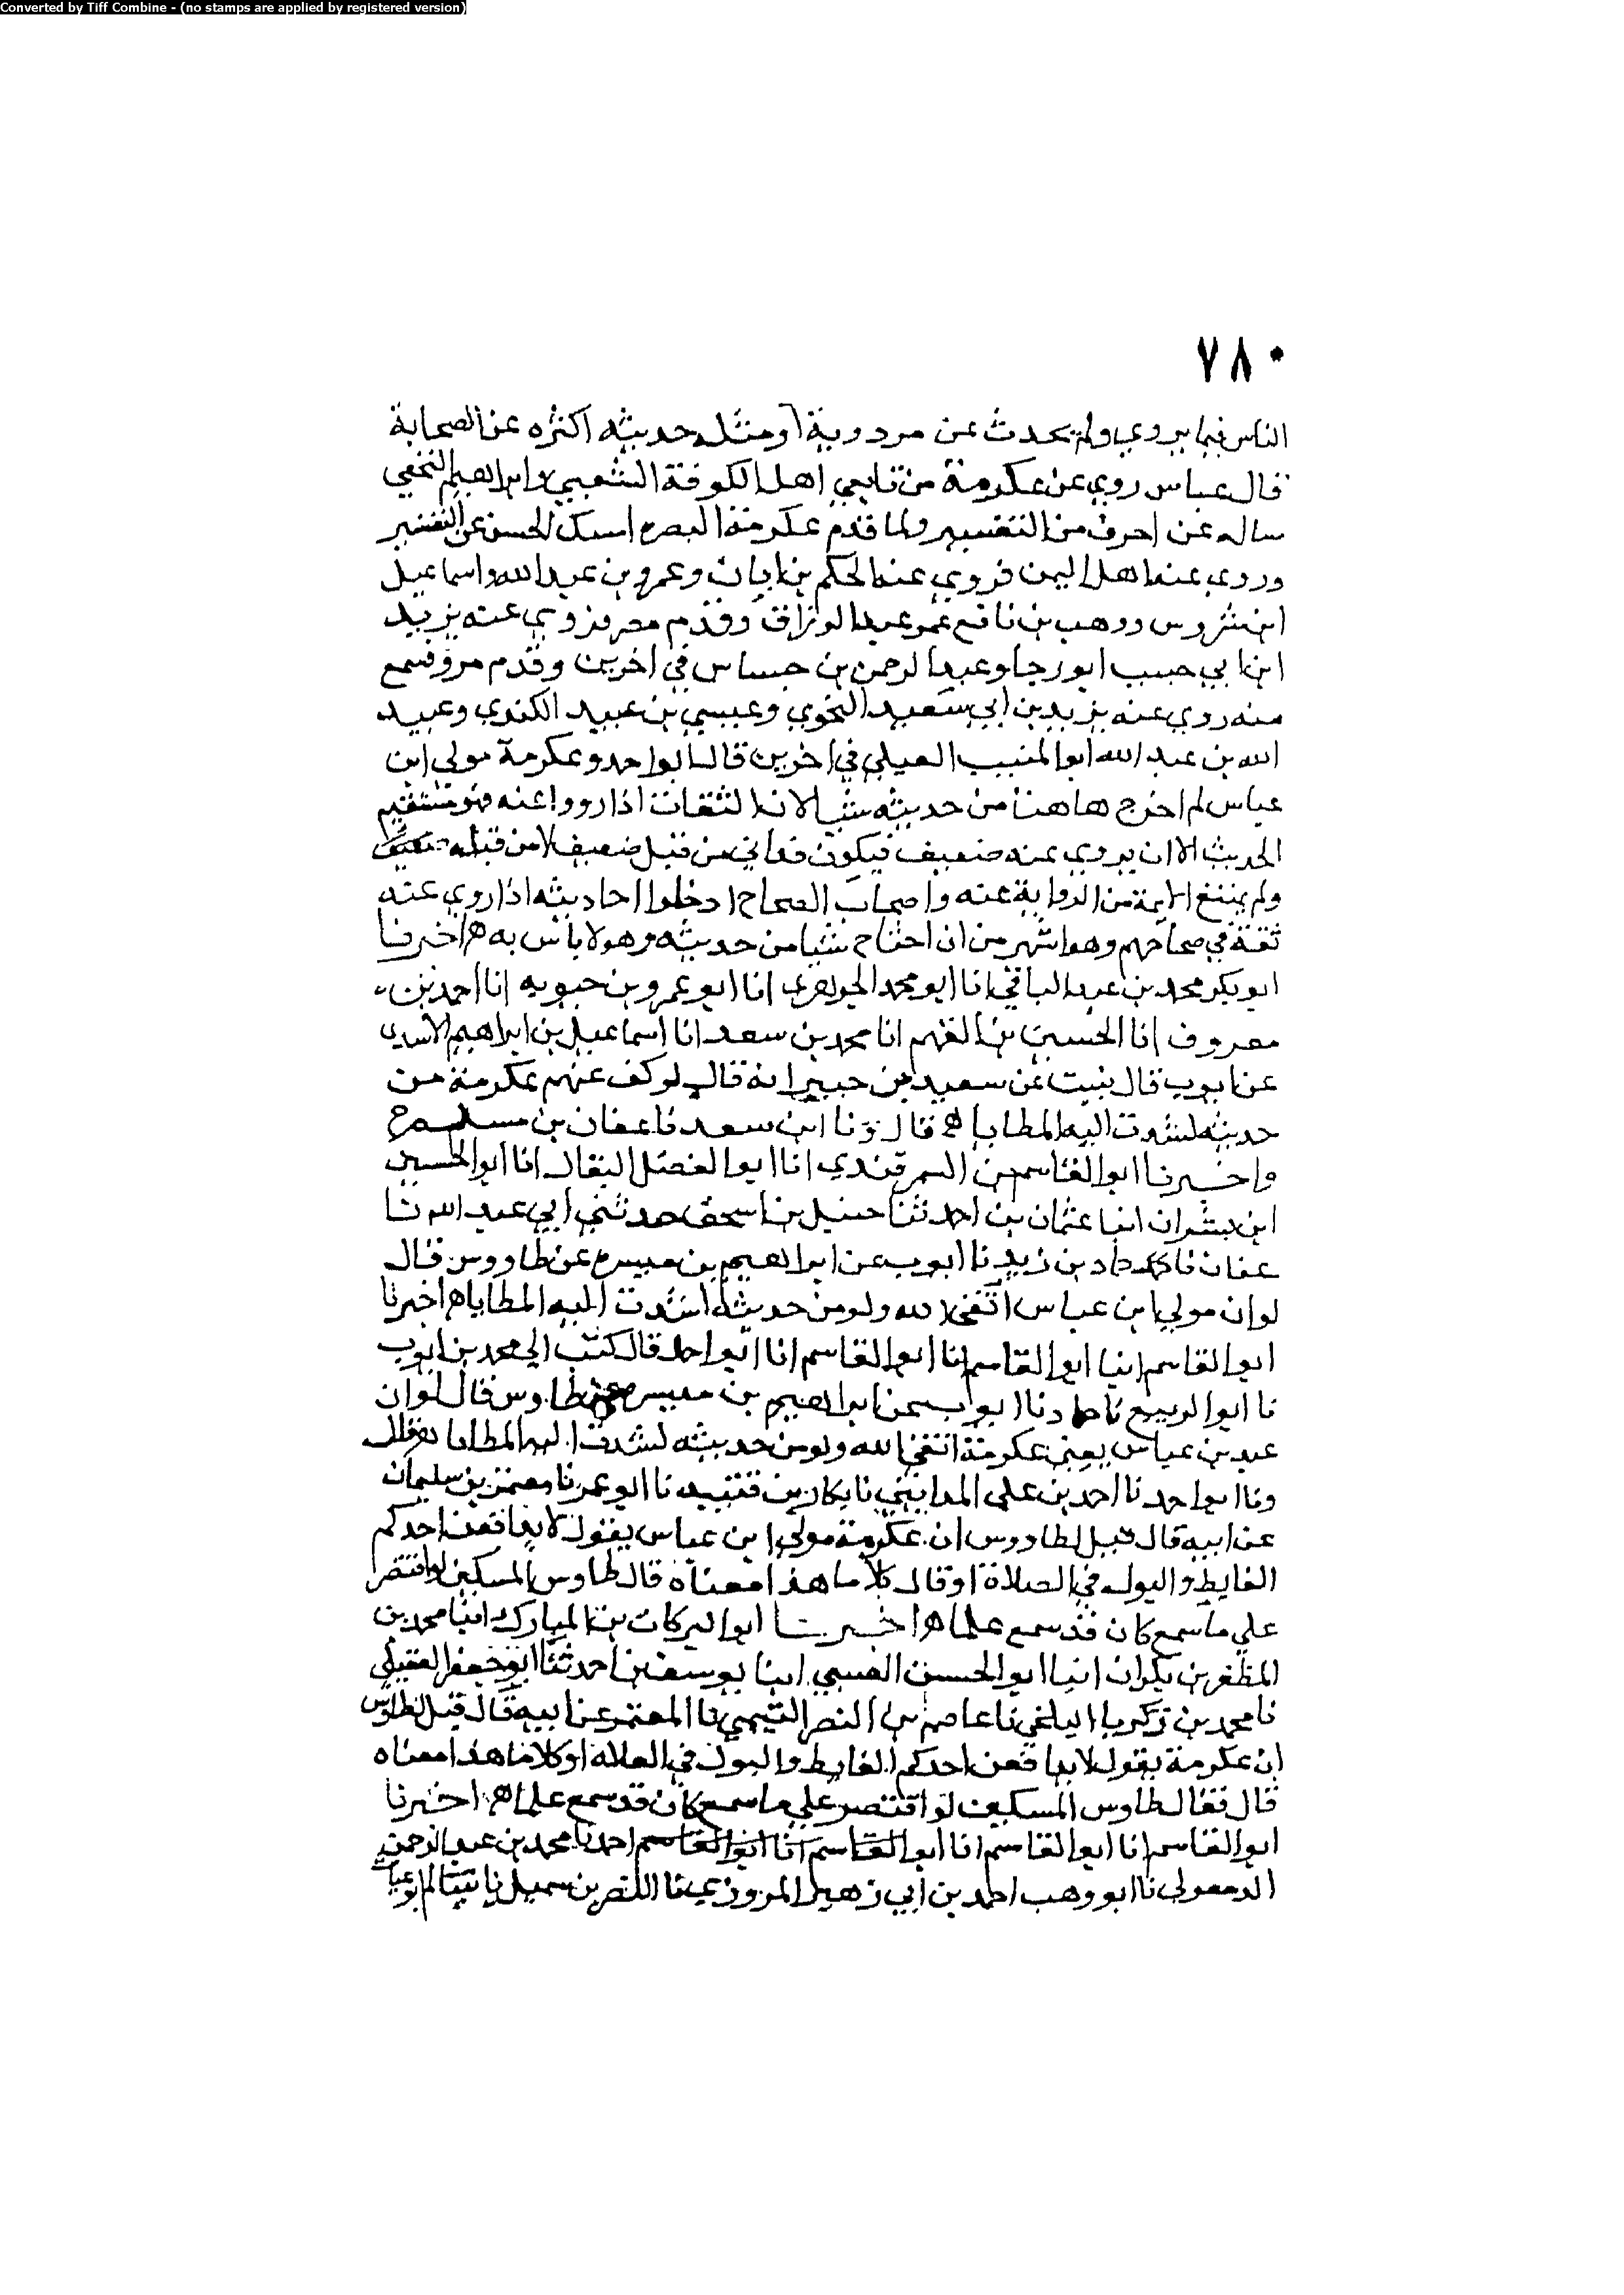 Converted by Tiff Combine - (no stamps are applied by registered version)
٧٨٠
الناس فيما يروي ولم يحدث عن من دونه او مثله حديثه اكثره عن الصحابة
قال عباس روي عن عكرمة من تابعي اهل الكوفة الشعبي وابراهيم النخعي
ساله عن احرف من التفسير ولما قدم عكرمة البصره امسك الحسن عن التفسير
وروي عنه اهل اليمن فروي عنه الحكم بن ابان وعمرو بن عبد الله واسماعيل
ابن شروس ووهب بن نافع عم عبد الرزاق وقدم مصر فروي عنه يزيد
ابن ابي حبيب ابو رجا وعبد الرحمن بن حساس في اخرين وقدم مرو فسمع
منه روي عنه يزيد بن ابي سعيد النحوي وعيسي بن عبيد الكندي وعبيد
الله بن عبد الله ابو المنيب العيلي في اخرين قال ابو احمد وعكرمة مولى ابن
عباس لم اخرج هاهنا من حديثه شيا لان الثقات اذا رووا عنه فهو مستقيم
الحديث الا ان يروي عنه ضعيف فيكون قد اتي من قبل ضعيف لا من قبله
ولم يمتنع الايمة من الرواية عنه واصحاب الصحاح ادخلوا احاديثه اذا روي عنه
ثقة في صحاحهم وهو اشهر من ان احتاج شيا من حديثه وهو لا باس به ه اخبرنا
ابو بكر محمد بن عبد الباقي انا ابو محمد الجوهري انا ابو عمرو بن حيويه انا احمد بن
معروف انا الحسين بن الفهم انا محمد بن سعد انا اسماعيل بن ابراهيم الاسدي
عن ايوب قال نبيت عن سعيد بن جبير انه قال لو كف عنهم عكرمة من
حديثه لشدت اليه المطايا ه قال ونا ابن سعد نا عفان بن مسلم ح
واخبرنا ابو القاسم بن السمرقندي انا ابو الفضل البقال انا ابو الحسين
ابن بشران انبا عثمان بن احمد ثنا حنبل بن اسحق حدثني ابي عبد الله نا
عفان نا حماد بن زيد نا ايوب عن ابراهيم بن ميسره عن طاووس قال
لو ان مولي ابن عباس اتقي الله ولو من حديثه اشدت اليه المطايا ه اخبرنا
ابو القاسم انبا ابو القاسم انا ابو القاسم انا ابو احمد قال كتب الي محمد بن ايوب
نا ابو الربيع نا حماد نا ايوب عن ابراهيم بن ميسره عن طاوس قال لو ان
عبد بن عباس يعني عكرمة اتقي الله ولو من حديثه لشدت اليه المطايا ه قال
ونا ابو احمد نا احمد بن علي المدايني نا بكار بن قتيبه نا ابو عمر نا معتمر بن سليمان
عن ابيه قال قيل لطاووس ان عكرمة مولي ابن عباس يقول لا يدافعن احدكم
الغايط والبول في الصلاة او قال كلاما هذا معناه قال طاوس المسكين لو اقتصر
علي ما سمع كان قد سمع علما ه اخبرنا ابو البركات بن المبارك انبا محمد بن
المظفر بن بكران انبا ابو الحسن العتيبي انبا يوسف بن احمد ثنا ابو جعفر العقيلي
نا محمد بن زكريا البلخي نا عاصم بن النضر التيمي نا المعتمر عن ابيه قال قيل لطاوس
ان عكرمة يقول لا يدافعن احدكم الغايط والبول في الصلاه او كلاما هذا معناه
قال فقال طاوس المسكين لو اقتصر علي ما سمع كان قد سمع علما ه اخبرنا
ابو القاسم انا ابو القاسم انا ابو القاسم انا ابو القاسم احمد نا محمد بن عبد الرحمن
الدمعولي نا ابو وهب احمد بن ابي زهير المروزي نا النضر بن سميل نا